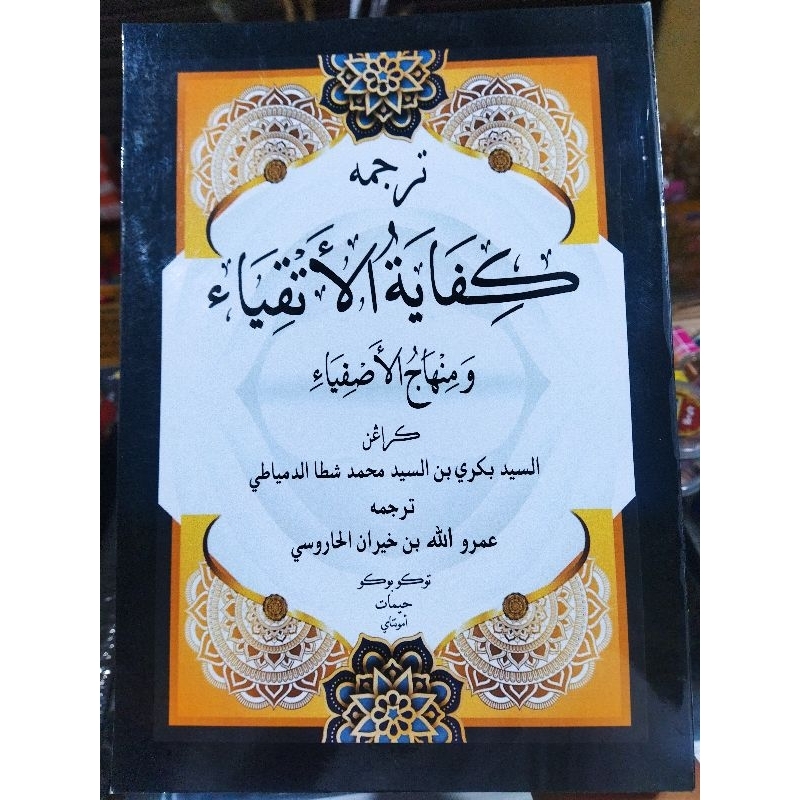 ترجمه
كِفَايَةُ الأَتْقِيَاء
وَمِنْهَاجُ الأَصْفِيَاءِ
كراڠن
السيد بكري بن السيد محمد شطا الدمياطي
ترجمه
عمرو الله بن خيران الحاروسي
توكو بوكو
حيمات
أمونتاي